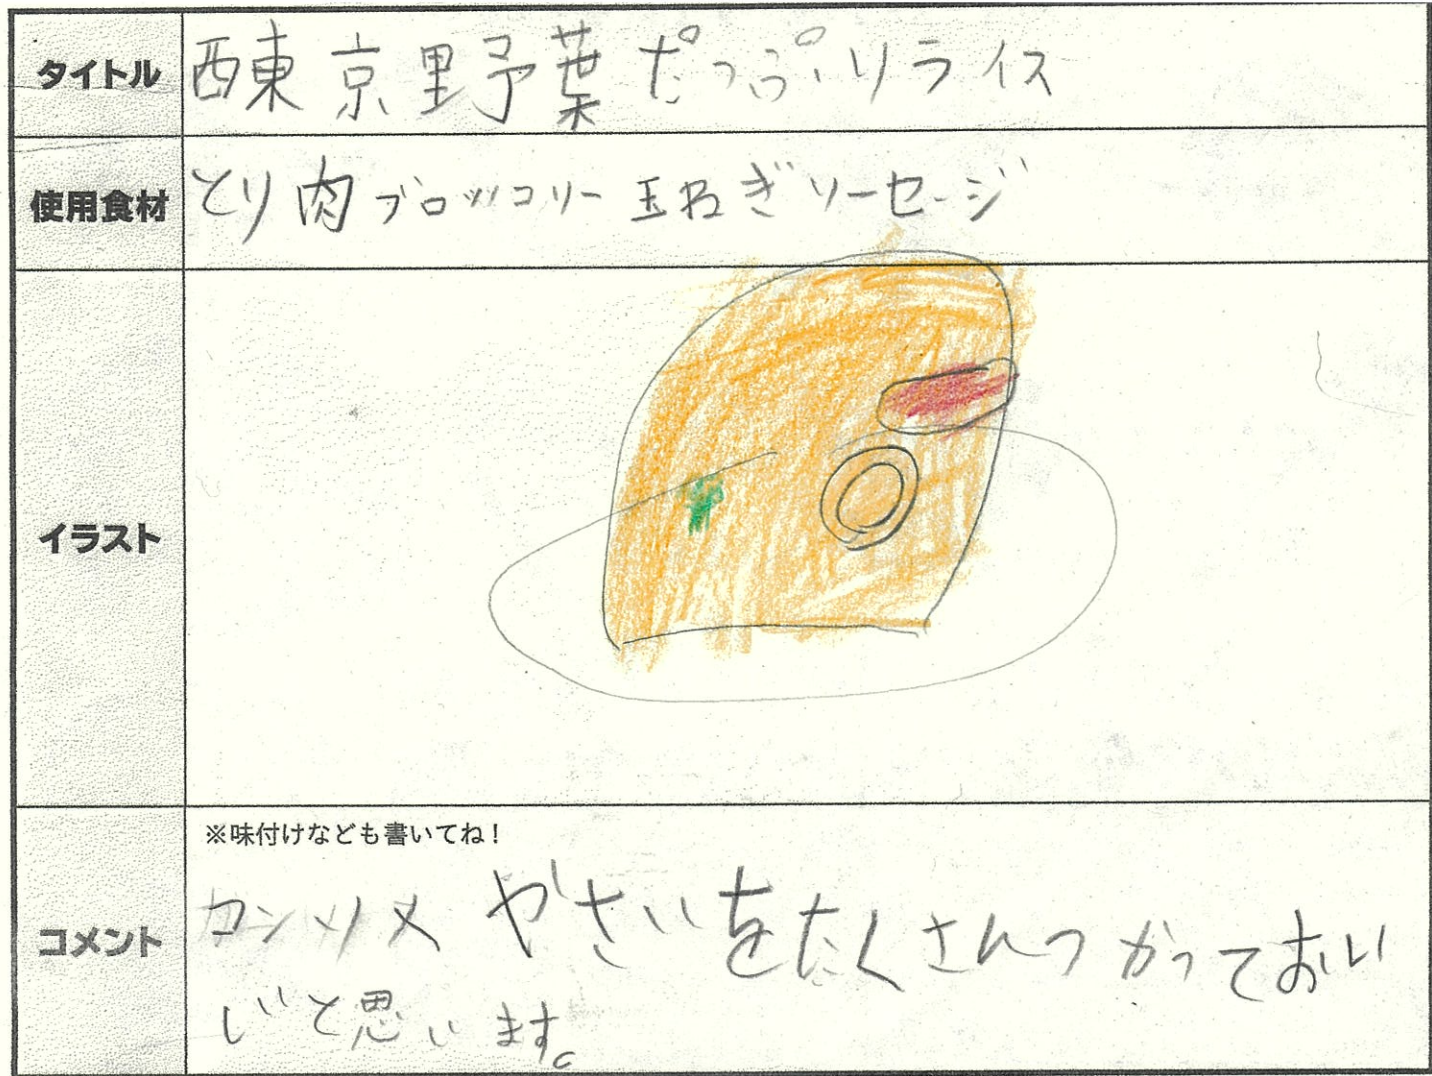 タイトル
西東京野葉たっぷりライス
使用食材
とり肉ブロッコリー 玉ねぎソーセージ
イラスト
※味付けなども書いてね！
コメント
コンソメ やさいをたくさんつかっておい
しいと思います。